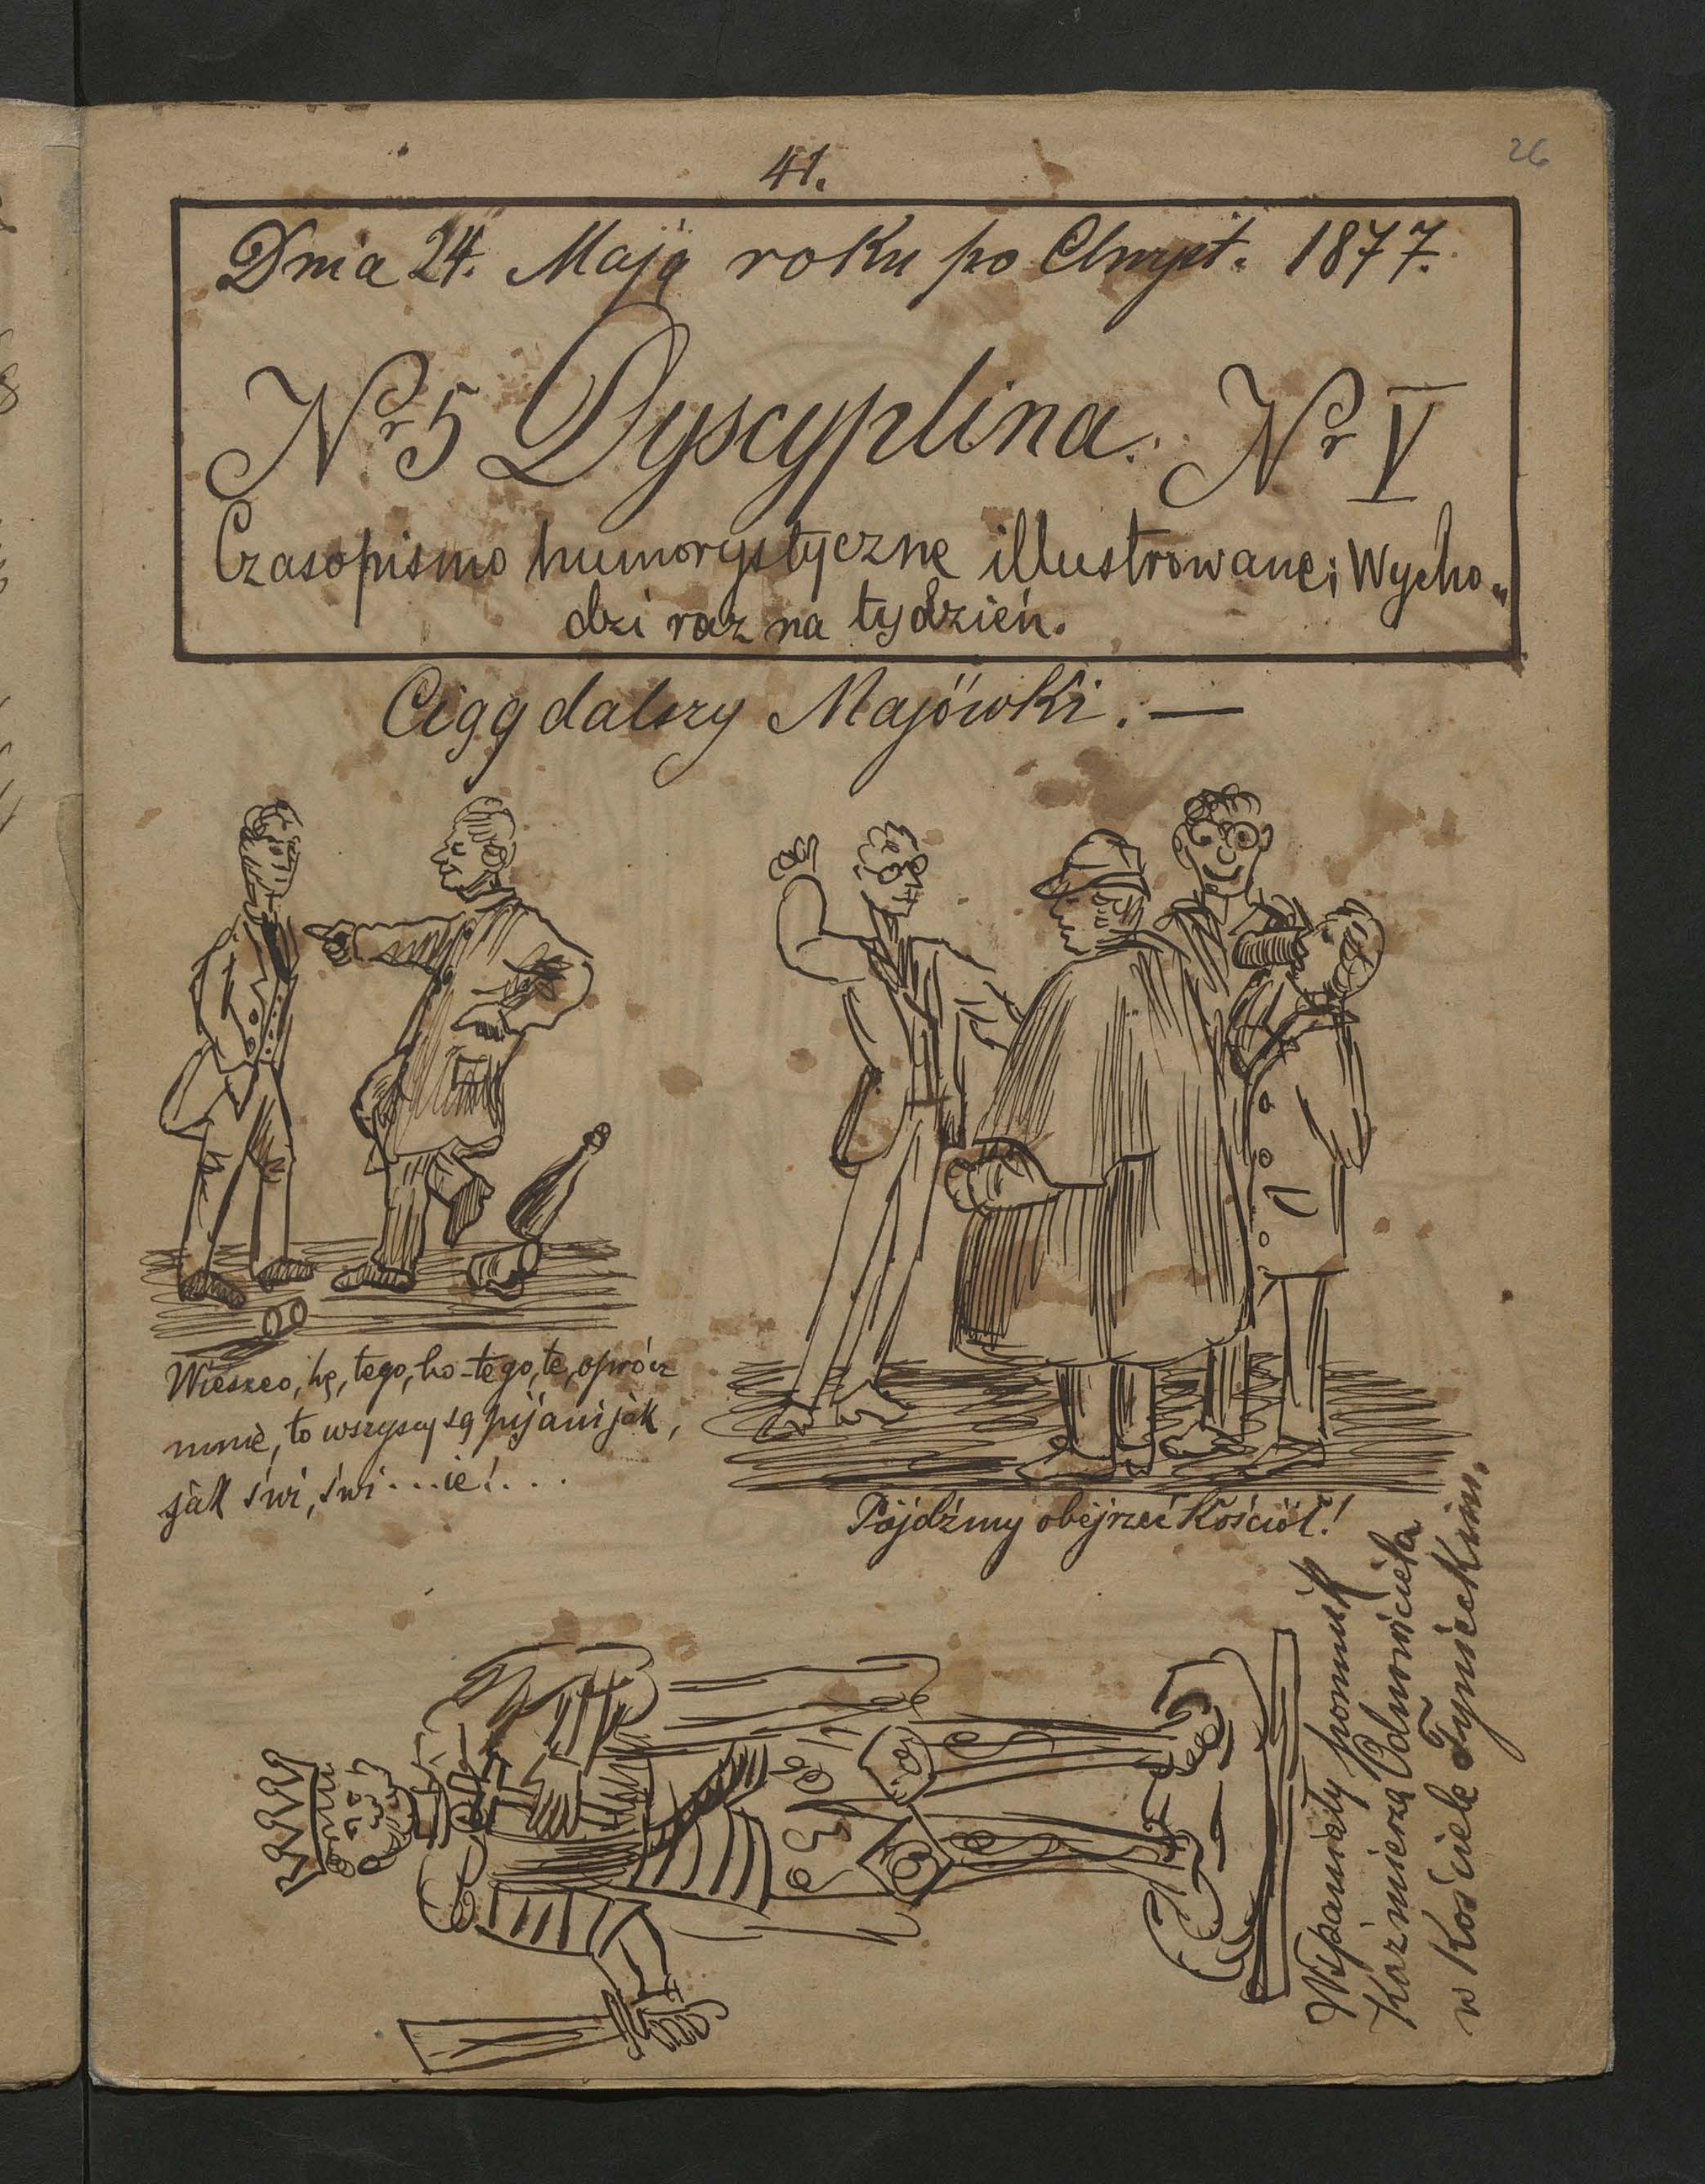 41.
26
Dnia 24. Maja roku po Chryst. 1877.
Nr 5 Dyscyplina. Nr V
Czasopismo humorystyczne illustrowane; Wycho„
dzi raz na tydzień.
Ciąg dalszy Majówki. —
Wieszco, hę, tego, ho-tego, te, oprócz
mnie, to wszyscy są pijani jak,
jak świ, świ...ie!...
Pójdźmy obejrzeć Kościół!
Wspaniały pomnik
Kaźmierza Odnowiciela
w Kościele Tynieckim.